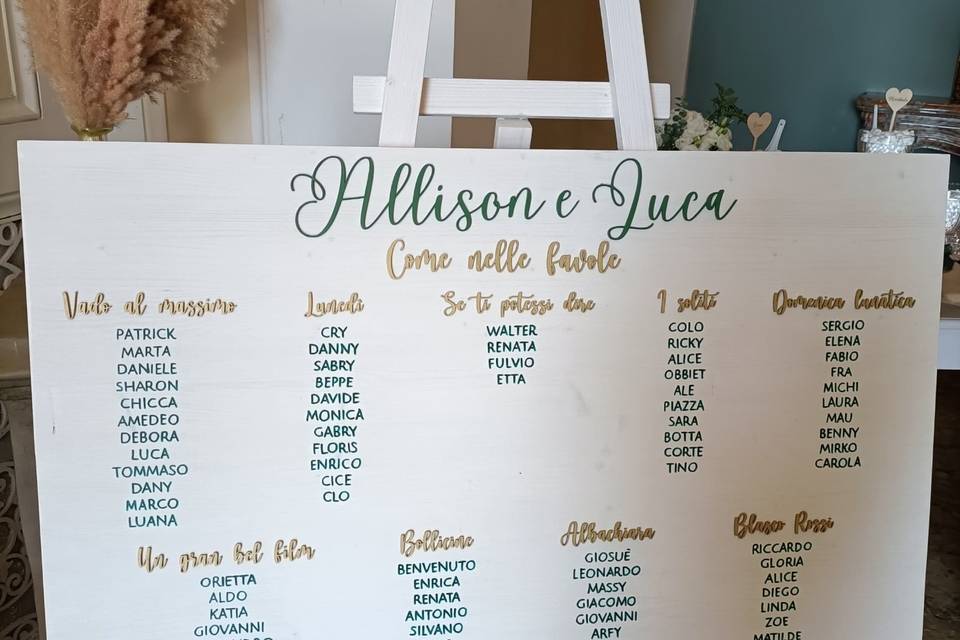 Allison e Luca
Come nelle favole
Vado al massimo
PATRICK
MARTA
DANIELE
SHARON
CHICCA
AMEDEO
DEBORA
LUCA
TOMMASO
DANY
MARCO
LUANA
Lunedì
CRY
DANNY
SABRY
BEPPE
DAVIDE
MONICA
GABRY
FLORIS
ENRICO
CICE
CLO
Se ti potessi dire
WALTER
RENATA
FULVIO
ETTA
I soliti
COLO
RICKY
ALICE
OBBIET
ALE
PIAZZA
SARA
BOTTA
CORTE
TINO
Domenica lunatica
SERGIO
ELENA
FABIO
FRA
MICHI
LAURA
MAU
BENNY
MIRKO
CAROLA
Un gran bel film
ORIETTA
ALDO
KATIA
GIOVANNI
Bollicine
BENVENUTO
ENRICA
RENATA
ANTONIO
SILVANO
Albachiara
GIOSUÈ
LEONARDO
MASSY
GIACOMO
GIOVANNI
ARFY
Blasco Rossi
RICCARDO
GLORIA
ALICE
DIEGO
LINDA
ZOE
MATILDE